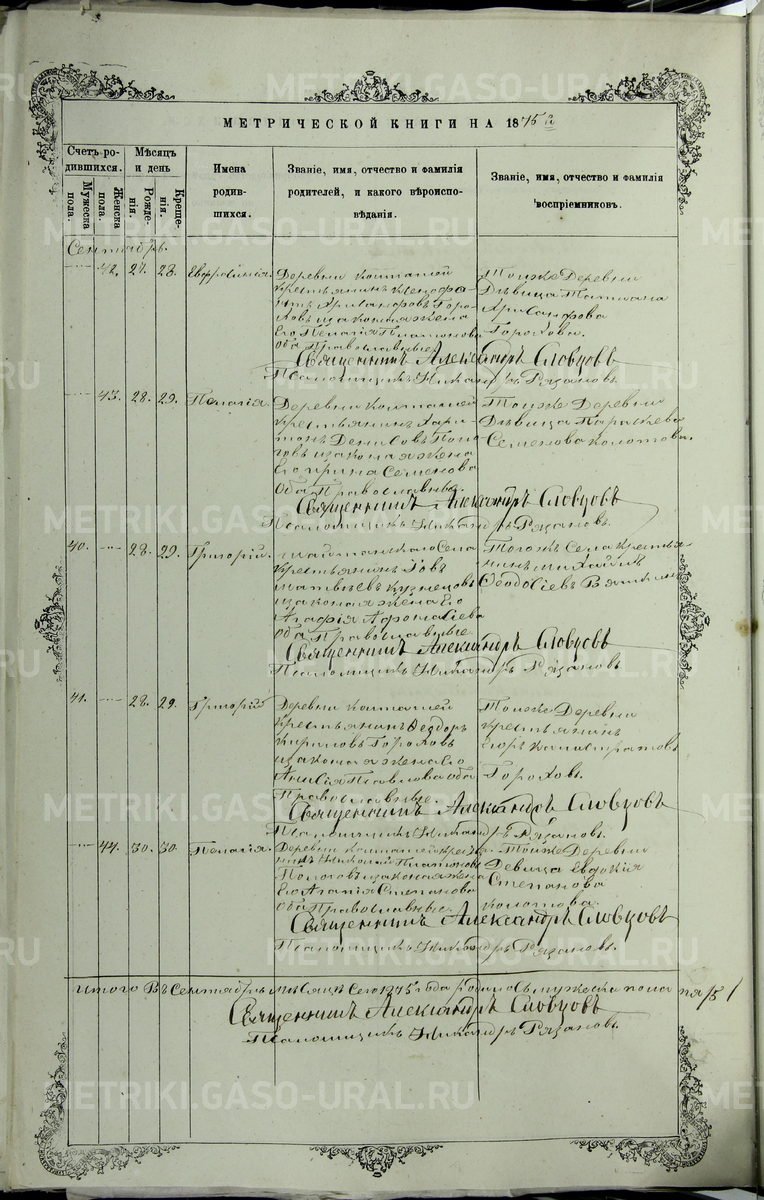 МЕТРИЧЕСКОЙ КНИГИ НА 1875 й
Счетъ родившихся.
Мужеска пола.
Женска пола.
Мѣсяцъ и день
Рожденія.
Крещенія.
Имена родившихся.
Званіе, имя, отчество и фамилія родителей, и какого вѣроисповѣданія.
Званіе, имя, отчество и фамилія воспріемниковъ.
Сентябрь.
42. 27. 28. Евфросинія.
Деревни
крестьянинъ
законная жена
Его Пелагія Платонова
оба Православные
Тойже Деревни
Дѣвица Татиана
Хрисанфова
Горохова.
Священникъ Александръ Словцовъ
Псаломщикъ Никандръ Рязановъ.
43. 28. 29. Пелагія.
Деревни
крестьянинъ Харитонъ Денисовъ
законная жена
Его Ирина Семенова
оба Православные.
Тойже Деревни
Дѣвица Параскева
Семенова Колотова.
Священникъ Александръ Словцовъ
Псаломщикъ Никандръ Рязановъ.
40. 28. 29. Григорій.
Шайтанскаго Села
Крестьянинъ Іовъ
Матвѣевъ Кузнецовъ
законная жена Его
Агафія Афонасіева
оба Православные
Тогожъ Села Крестьянинъ Михаилъ
Ѳеодосіевъ
Священникъ Александръ Словцовъ
Псаломщикъ Никандръ Рязановъ
41. 28. 29. Григорій
Деревни
Крестьянинъ Ѳеодоръ
Кириловъ Гороховъ
законная жена Его
Анисія Павлова оба
Православные.
Тойже Деревни
Крестьянинъ
Егоръ Калистратовъ
Гороховъ.
Священникъ Александръ Словцовъ
Псаломщикъ Никандръ Рязановъ.
44. 30. 30. Пелагія.
Деревни
Николай Платоновъ
законная жена
Его Агапія Степанова
оба Православные.
Тойже Деревни
Девица Евдокія
Степанова
Колотова.
Священникъ Александръ Словцовъ
Псаломщикъ Никандръ Рязановъ.
Итого Въ Сентябрѣ Мѣсяцѣ Сего 1875 года родилось мужеска пола
Священникъ Александръ Словцовъ
Псаломщикъ Никандръ Рязановъ.
METRIKI.GASO-URAL.RU